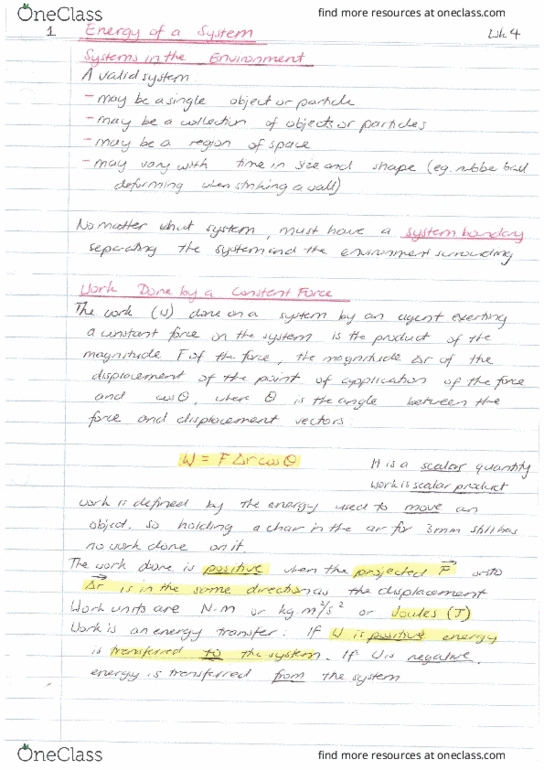 OneClass
find more resources at oneclass.com
1 Energy of a System Wk 4
Systems in the Environment
A valid system:
- may be a single object or particle
- may be a collection of objects or particles
- may be a region of space
- may vary with time in size and shape (eg. rubber ball
deforming when striking a wall)
No matter what system, must have a system boundary
separating the system and the environment surrounding
Work Done by a Constant Force
The work (W) done on a system by an agent exerting
a constant force on the system is the product of the
magnitude F of the force, the magnitude Δr of the
displacement of the point of application of the force
and cosθ, where θ is the angle between the
force and displacement vectors:
W = FΔrcosθ It is a scalar quantity
Work is scalar product
Work is defined by the energy used to move an
object, so holding a chair in the air for 3 still has
no work done on it.
The work done is positive when the projected F⃗ onto
Δr⃗ is in the same direction as the displacement
Work units are N.m or kg.m²/s² or Joules (J)
Work is an energy transfer: If W is positive energy
is transferred to the system. If W is negative,
energy is transferred from the system
OneClass
find more resources at oneclass.com